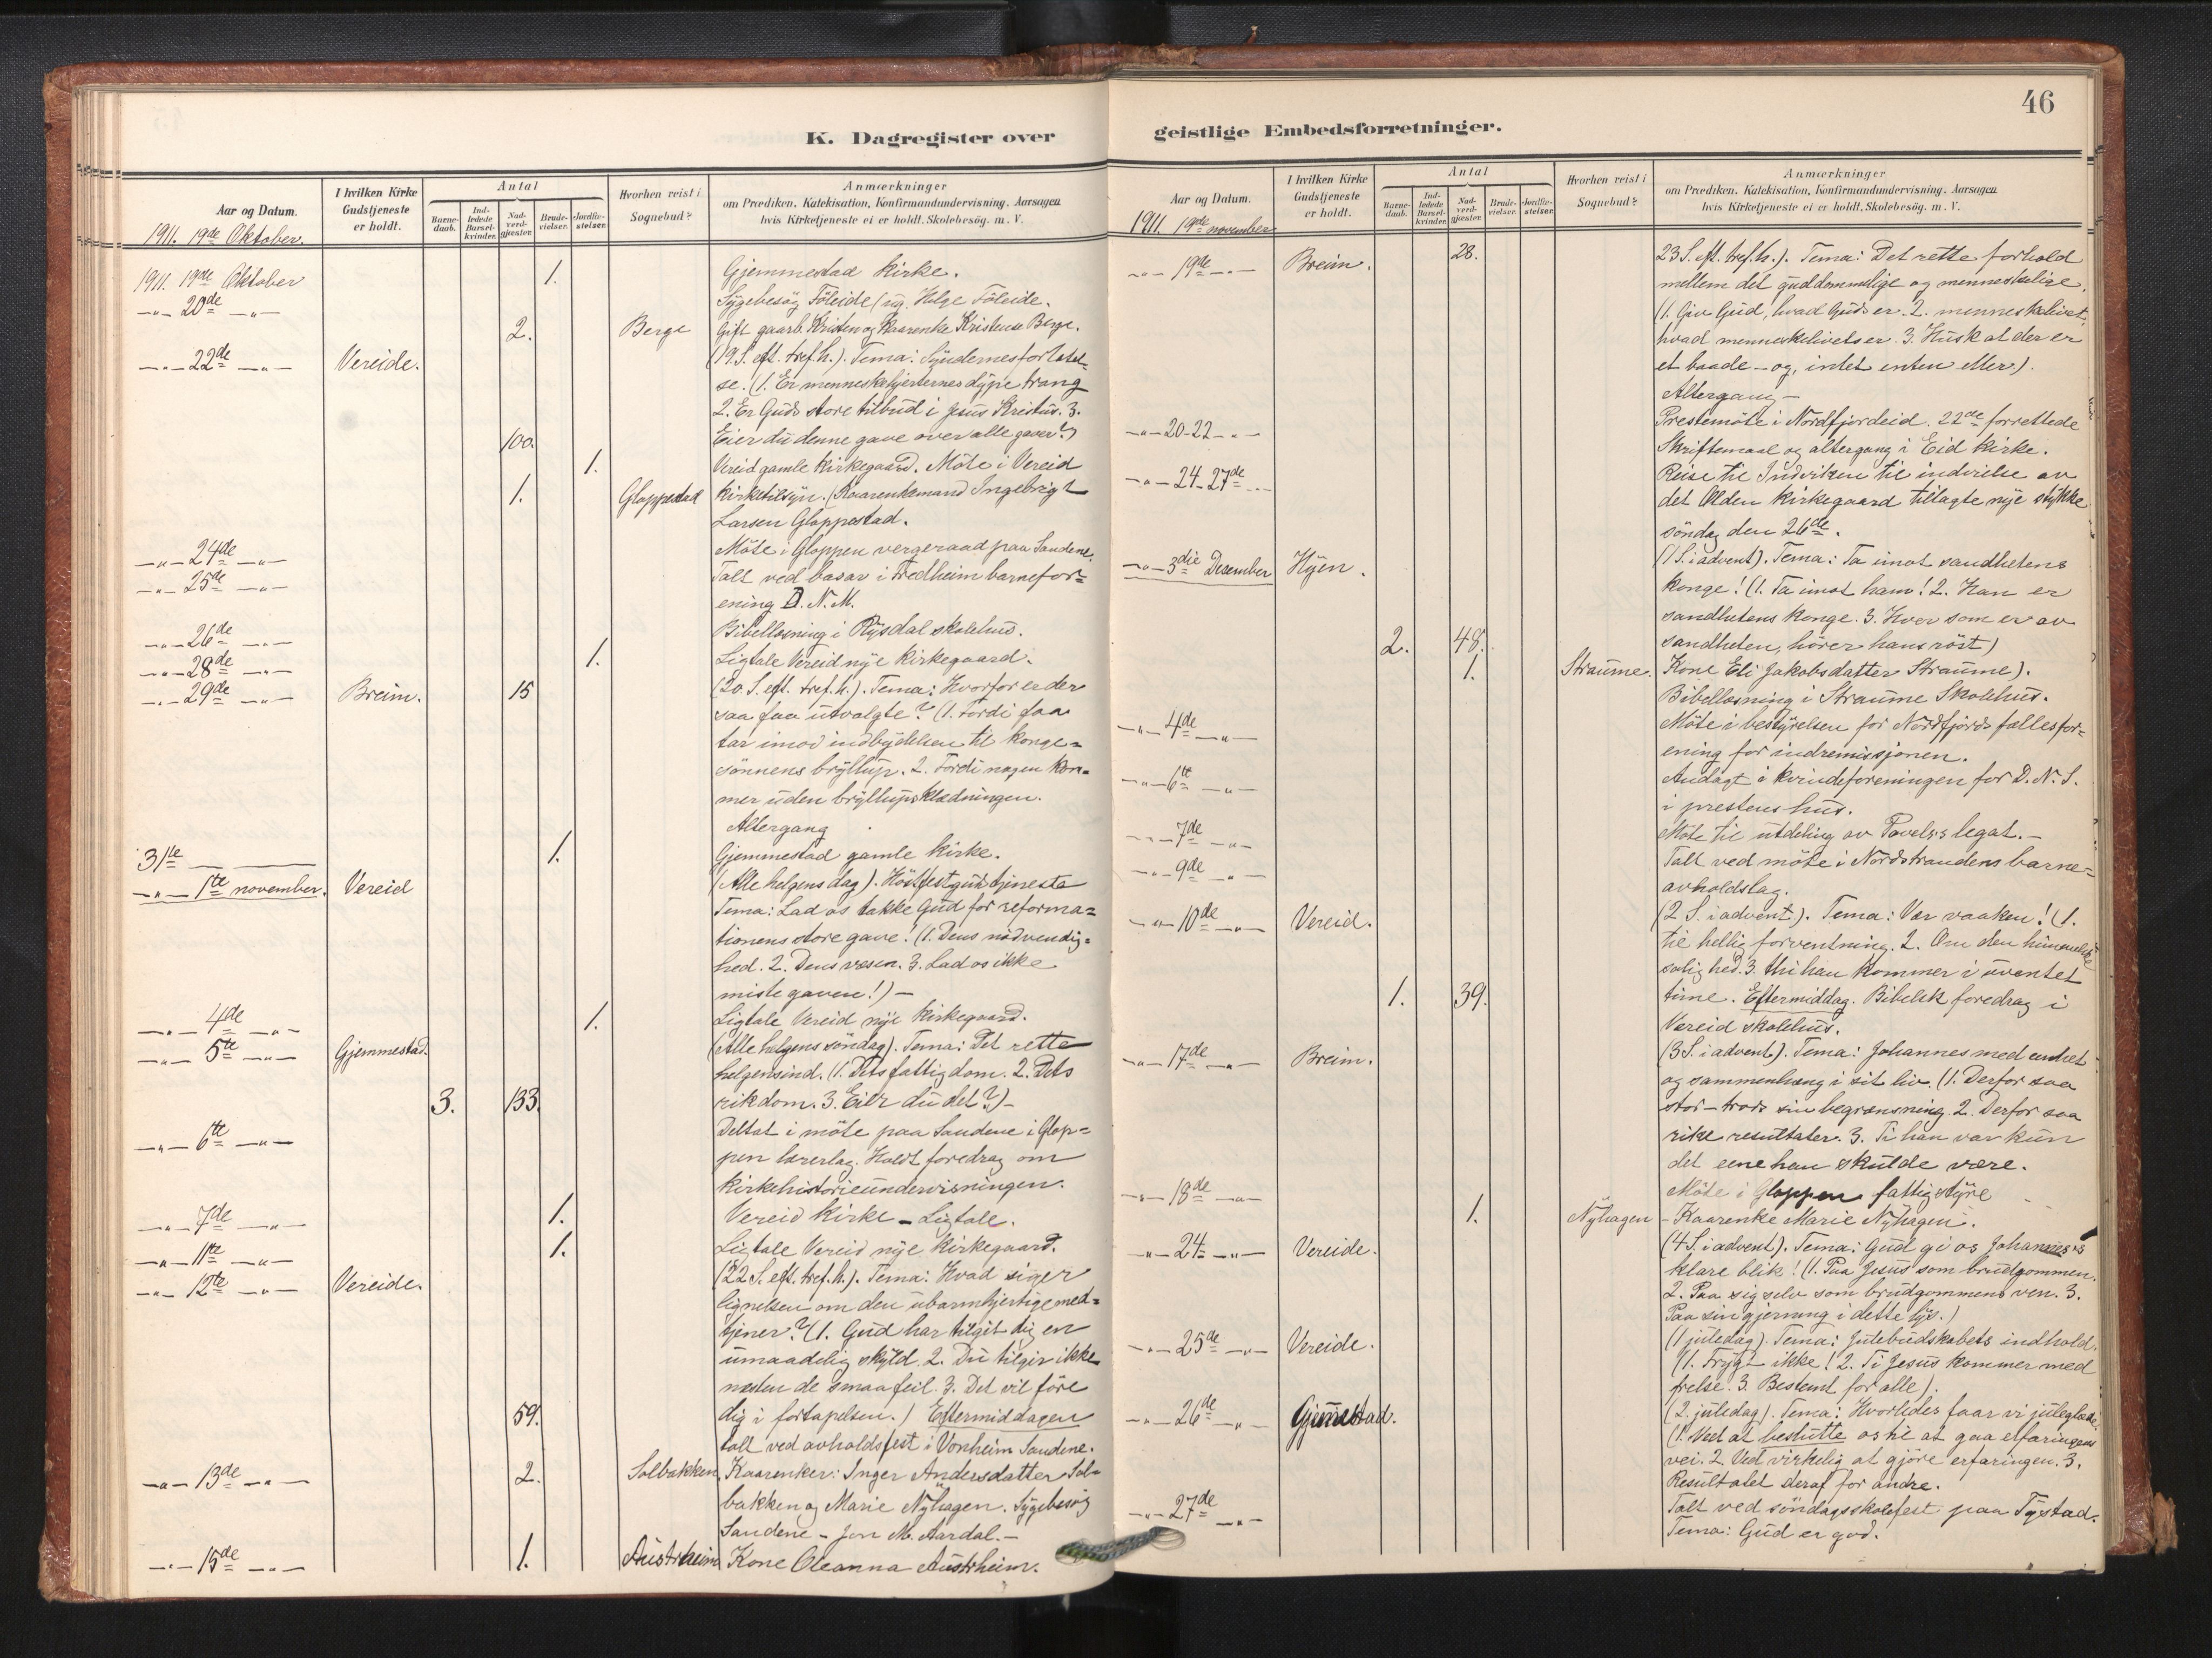 K. Dagregister over
Aar og Datum.
I hvilken Kirke Gudstjeneste er holdt.
Antal
Barne-daab.
Ind-ledede Barsel-kvinder.
Nad-verd-gjæster.
Brude-vielser.
Jordfæ-stelser.
Hvorhen reist i Sognebud?
Anmærkninger
om Prædiken, Katekisation, Konfirmandundervisning, Aarsagen
hvis Kirketjeneste ei er holdt, Skolebesøg. m. V.
1911. 19de Oktober.
1911. 19de Oktober 1. Gjemmestad kirke.
-"- 20de -"- Sygebesög Föleide (ug. Helge Föleide.
2. Berge Gift gaarb. Kristen og Kaarenke Kristense Berge.
-"- 22de -"- Vereide. (19. S. eft. tref. h.). Tema: Syndernes forlatel=
se. (1. Er menneskehjerternes dype trang
2. Er Guds store tilbud i Jesus Kristus. 3.
100. Eier du denne gave over alle gaver?)
1. Vereid gamle kirkegaard. Möte i Vereid
1. Gloppestad kirketilsyn. (Kaarenkemand Ingebrigt
Larsen Gloppestad.
-"- 24de -"- Möte i Gloppen vergeraad paa Sandene.
-"- 25de -"- Talt ved basar i Fredheim barnefor=
ening D. N. M.
-"- 26de -"- Bibellæsning i Rysdal skolehus.
-"- 28de -"- 1. Ligtale Vereid nye kirkegaard.
-"- 29de -"- Breim. 15 (20. S. eft. tref. h.). Tema: Hvorfor er der
saa faa utvalgte? (1. Fordi faa
tar imod indbydelsen til konge=
sönnens bryllup. 2. Fordi nogen kom=
mer uden bryllupsklædningen.
Altergang
31te 1. Gjemmestad gamle kirke.
-"- 1te november. Vereid (Alle helgens dag). Höstfestgudstjeneste
Tema: Lad os takke Gud for reforma=
tionens store gave! (1. Dens nödvendig=
hed. 2. Dens væsen. 3. Lad os ikke
miste gaven!) -
-"- 4de -"- 1. Ligtale Vereid nye kirkegaard.
-"- 5te -"- Gjemmestad. (Alle helgens söndag). Tema: Det rette
helgensind. (1. Dets fattigdom. 2. Dets
3. 133. rikdom. 3. Eier du det?) -
-"- 6te -"- Deltat i möte paa Sandene i Glop=
pen lærerlag. Holdt foredrag om
kirkehistorieundervisningen.
-"- 7de -"- 1. Vereid kirke - Ligtale.
-"- 11te -"- 1. Ligtale Vereid nye kirkegaard.
-"- 12te -"- Vereide. (22 S. eft. tref. h.). Tema: Hvad siger
lignelsen om den ubarmhjertige med=
tjener? (1. Gud har tilgit dig en
umaadelig skyld. 2. Du tilgir ikke
næsten de smaa feil. 3. Det vil före
59. dig i fortapelsen.) Eftermiddagen
talt ved avholdsfest i Vonheim Sandene.
-"- 13de -"- 2. Solbakken Kaarenker: Inger Andersdatter Sol=
bakken og Marie Nyhagen. Sygebesög
Sandene - Jon M. Aardal. -
-"- 15de -"- 1. Austrheim Kone Oleanna Austrheim.
46
geistlige Embedsforretninger.
Aar og Datum.
I hvilken Kirke Gudstjeneste er holdt.
Antal
Barne-daab.
Ind-ledede Barsel-kvinder.
Nad-verd-gjæster.
Brude-vielser.
Jordfæ-stelser.
Hvorhen reist i Sognebud?
Anmærkninger
om Prædiken, Katekisation, Konfirmandundervisning, Aarsagen
hvis Kirketjeneste ei er holdt, Skolebesøg. m. V.
1911. 19de november
-"- 19de -"- Breim. 28. 23 S. eft. tref. h.). Tema: Det rette forhold
mellem det guddommelige og menneskelige.
(1. Giv Gud, hvad Guds er. 2. menneskelivet,
hvad menneskelivets er. 3. Husk at der er
et baade - og, intet enten eller).
Altergang -
-"- 20-22 -"- Prestemöte i Nordfjordeid. 22de forrettede
Skriftemaal og altergang i Eid kirke.
-"- 24-27de -"- Reise til Indviken til indvielse av
det Olden kirkegaard tillagte nye stykke
söndag den 26de.
-"- 3die Desember Hyen. (1 S. i advent). Tema: Ta imot sandhetens
konge! (1. Ta imot ham! 2. Han er
sandhetens konge. 3. Hver som er av
2. 48. sandheten, hörer hans röst)
1. Straume. Kone Eli Jakobsdatter Straume).
Bibellæsning i Straume Skolehus.
-"- 4de -"- Möte i bestyrelsen for Nordfjords fællesfor=
ening for indremissjonen.
-"- 6te -"- Andagt i kvindeforeningen for D. N. S.
i prestens hus.
-"- 7de -"- Möte til utdeling av Povels:s legat. -
-"- 9de -"- Talt ved möte i Nordstrandens barne=
avholdslag.
-"- 10de -"- Vereid. (2 S. i advent). Tema: Vær vaaken! (1.
til hellig forventning. 2. Om den himmelske
salighed. 3. thi han kommer i uventet
1. 39. time. Eftermiddag. Bibelsk foredrag i
Vereid skolehus.
-"- 17de -"- Breim. (3 S. i advent). Tema: Johannes med enhet
og sammenhæng i sit liv. (1. Derfor saa
stor - trods sin begrænsning. 2. Derfor saa
rike resultater. 3. Ti han var kun
det ene han skulde være.
-"- 18de -"- Möte i Gloppen fattigstyre
1. Nyhagen - Kaarenke Marie Nyhagen.
-"- 24 -"- Vereide. (4 S. i advent). Tema: Gud gi os Johannes's
klare blik! (1. Paa Jesus som brudgommen.
2. Paa sig selv som brudgommens ven. 3.
Paa sin gjerning i dette lys.)
-"- 25de -"- Vereide. (1 juledag). Tema: Julebudskabets indhold.
(1. Frygt ikke! 2. Ti Jesus kommer med
frelse. 3. Bestemt for alle).
-"- 26de -"- Gjemmestad. (2. juledag). Tema: Hvorledes faar vi juleglæde
(1. Ved at beslutte os til at gaa erfaringens
vei. 2. Ved virkelig at gjöre erfaringen. 3.
Resultatet deraf for andre.
-"- 27de -"- Talt ved söndagsskolefest paa Tystad.
Tema: Gud er god.